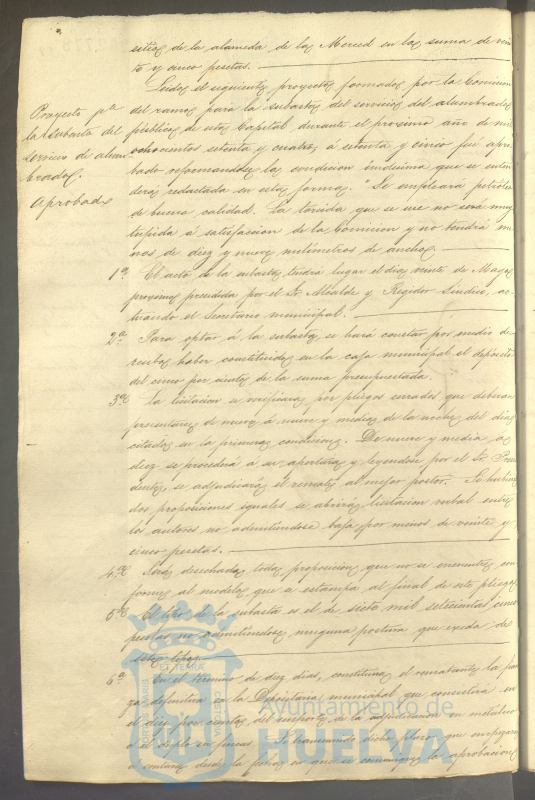 sitios de la alameda de la Merced en la suma de vein
te y cinco pesetas.
Leido el siguiente proyecto formado por la Comision
del ramo para la subasta del servicio del alumbrado
público de esta Capital durante el proximo año de mil
ochocientos setenta y cuatro á setenta y cinco fué apro
bado reformandose la condicion undécima que se enten
derá redactada en esta forma. "Se empleará petróleo
de buena calidad. La torcida que se use no será muy
tupida á satisfaccion de la Comision y no tendrá me
nos de diez y nueve milímetros de ancho.
Proyecto pª
la subasta del
servicio de alum
brado.
Aprobado
1ª El acto de la subasta tendrá lugar el dia veinte de Mayo
proximo presidida por el Sr. Alcalde y Regidor Síndico, ac
tuando el Secretario municipal.
2ª Para optar á la subasta se hará constar por medio de
recibo haber constituido en la caja municipal el depósito
del cinco por ciento de la suma presupuestada.
3ª La licitacion se verificará por pliegos cerrados que deberán
presentarse de nueve á nueve y media de la noche del dia
citado en la primera condicion. De nueve y media á
diez se procederá á su apertura y leyendose por el Sr. Presi
dente, se adjudicará el remate al mejor postor. Si hubiere
dos proposiciones iguales se abrirá licitacion verbal entre
los autores no admitiéndose baja por menos de veinte y
cinco pesetas.
4ª Será desechada toda proposicion que no se encuentre con
forme al modelo que se estampa al final de este pliego
5ª El tipo de la subasta es el de siete mil setecientas cinco
pesetas no admitiendose ninguna postura que exceda de
este tipo.
6ª En el término de diez dias, constituirá el rematante la fian
za definitiva en la Depositaria municipal que consistirá en
el diez por ciento del importe de la adjudicacion en metalico
ó el doble en fincas. dicho plazo que empezará
á contarse desde la fecha en que se comunique la aprobacion
Ayuntamiento de
HUELVA